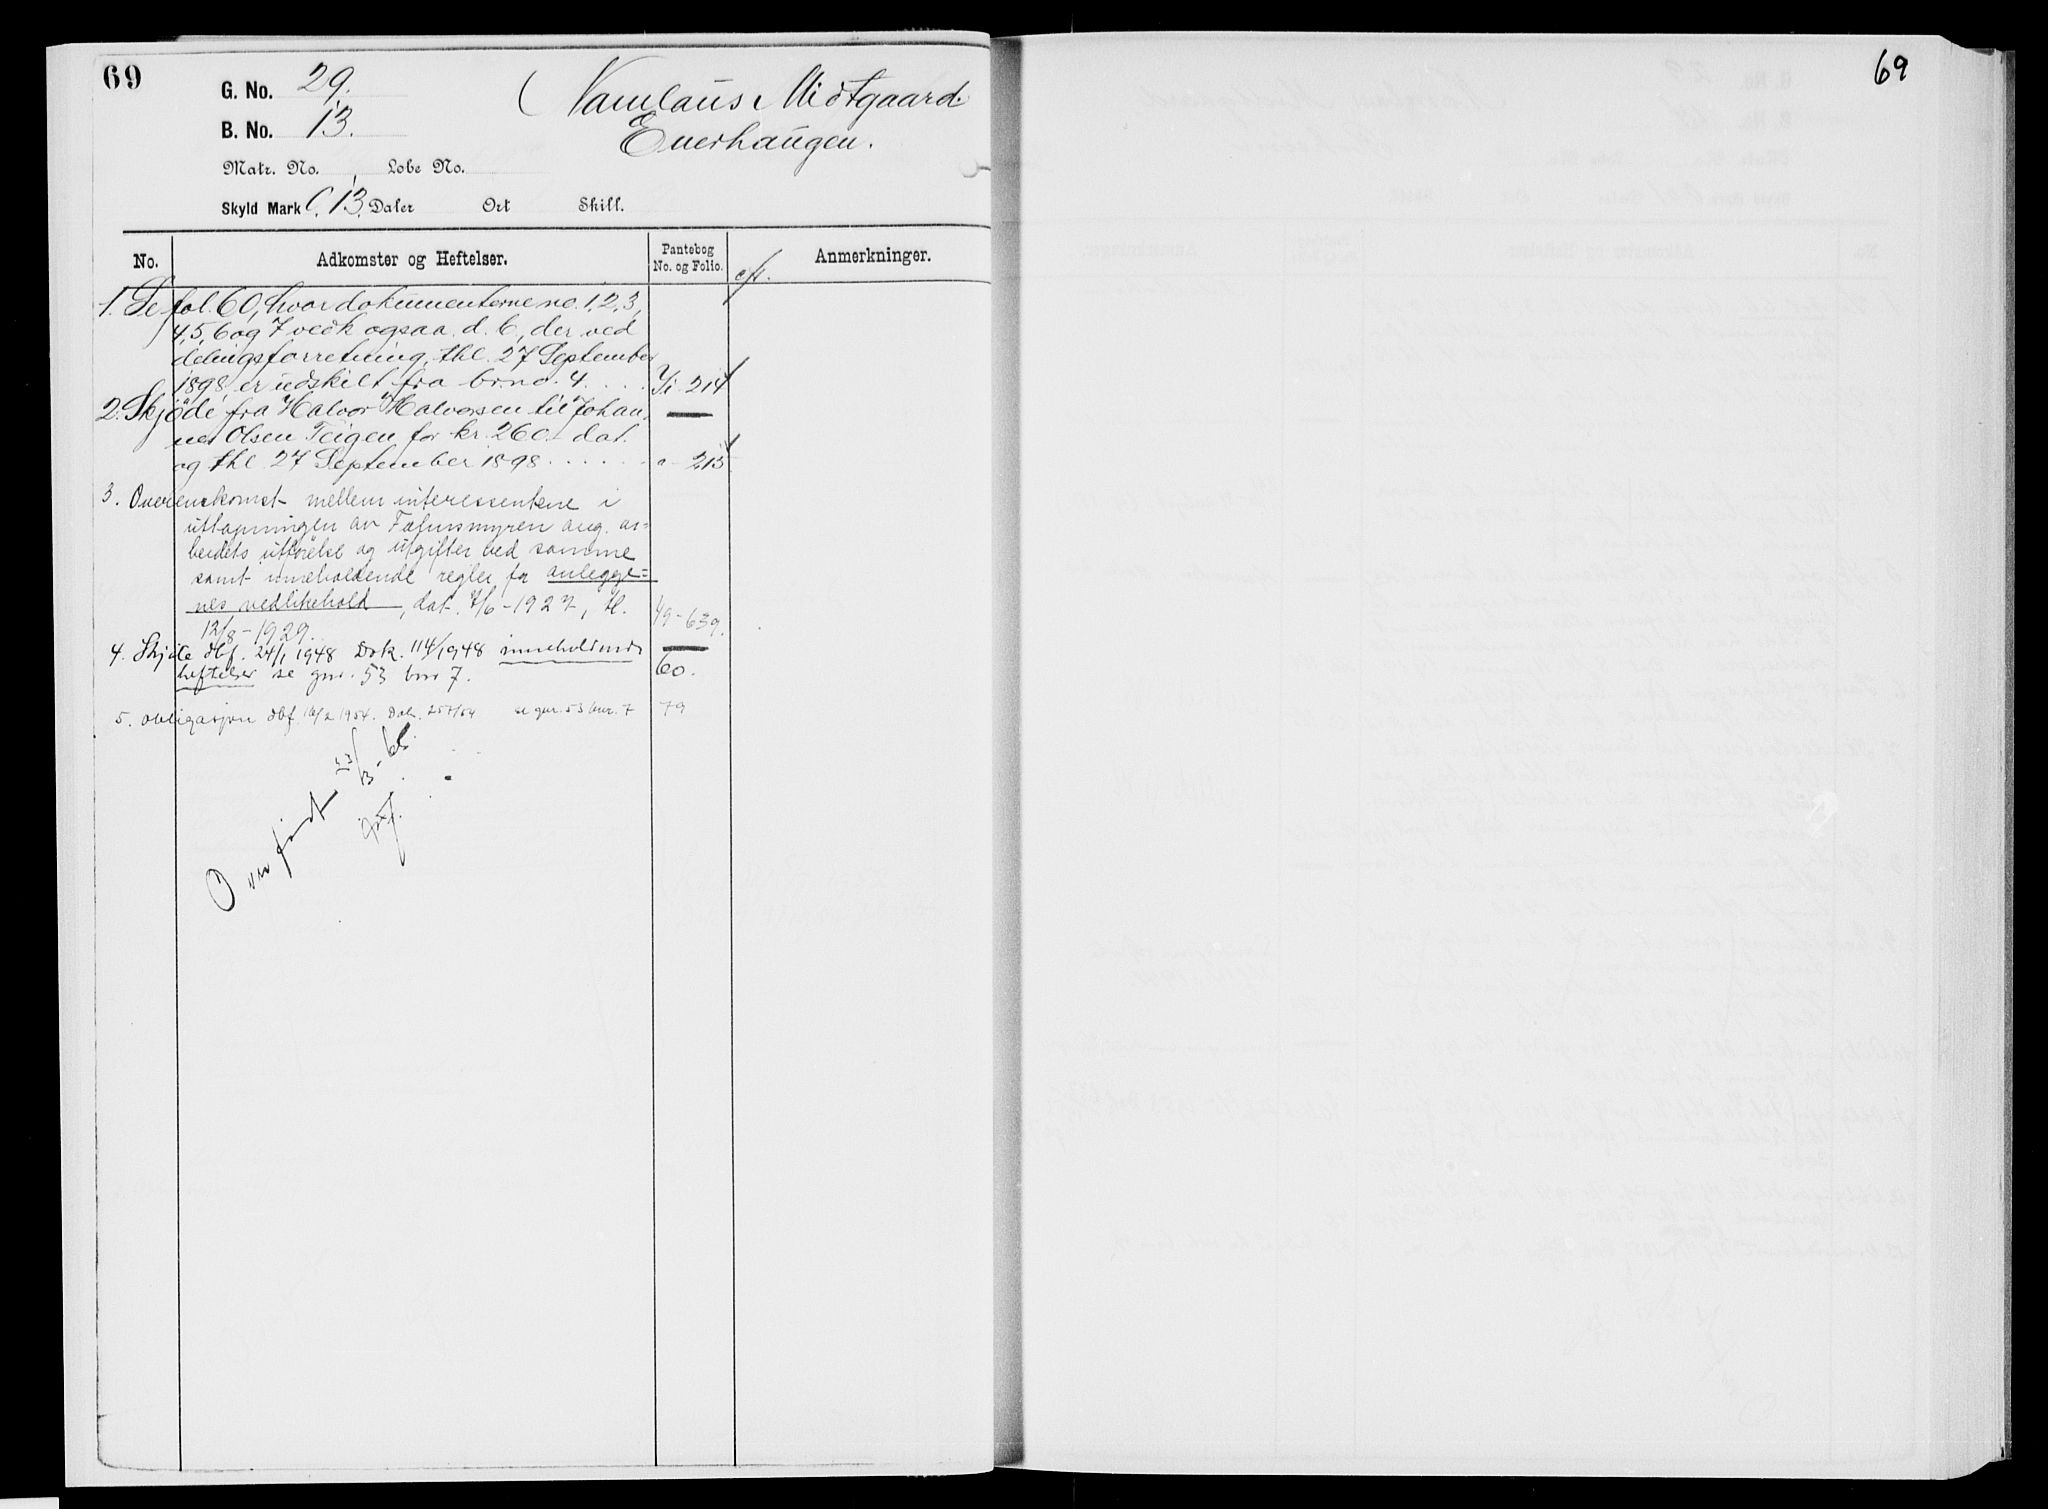 69
G. No. 29.
B. No. 13.
Matr. No. Lobe No.
Skyld Mark 0,13. Daler Ort Skill.
Namlaus Midtgaard.
Enerhaugen.
No. Adkomster og Heftelser. Pantebog No. og Folio. Anmerkninger.
1. Se fol. 60, hvor dokumenterne no. 1, 2, 3,
4, 5, 6 og 7 vedk. ogsaa d. b., der ved
delingsforretning, thl. 27 September
1898, er udskilt fra br.no. 4. . . . 214
2. Skjøde fra Halvor Halvorsen til Johan-
nes Olsen Teigen for kr. 260.- dat.
og thl. 27 September 1898 . . . . . 215
3. Overenskomst mellem interessentene i
uttapningen av myren ang. ar-
beidets utførelse og utgifter ved samme
samt inneholdende regler for anlegge-
nes vedlikehold, dat. 7/6-1927, tl.
12/8-1929. 49-639.
4. Skjøte dbf. 24/1 1948 Dok. 114/1948 inneholdende
heftelser se gnr. 53 bnr 7. 60.
5. Obligasjon dbf. 16/2 1954. Dok. 257/54 se gnr. 53 bnr. 7 79
Overført
69